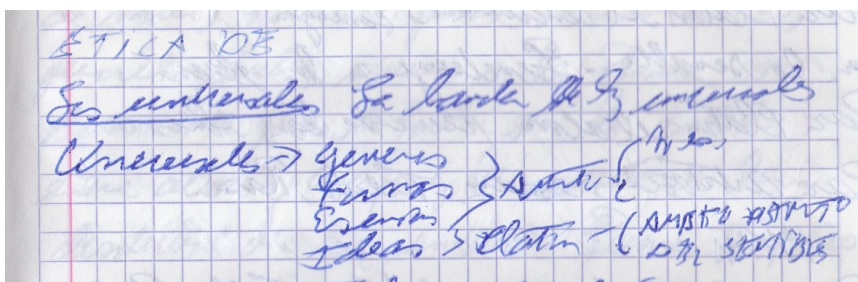 ETICA DE
Los universales La banda de los universales
Universales → géneros
Formas
Esencias
Ideas > Platón - ( AMBITO DISTINTO
DEL SENSIBLE